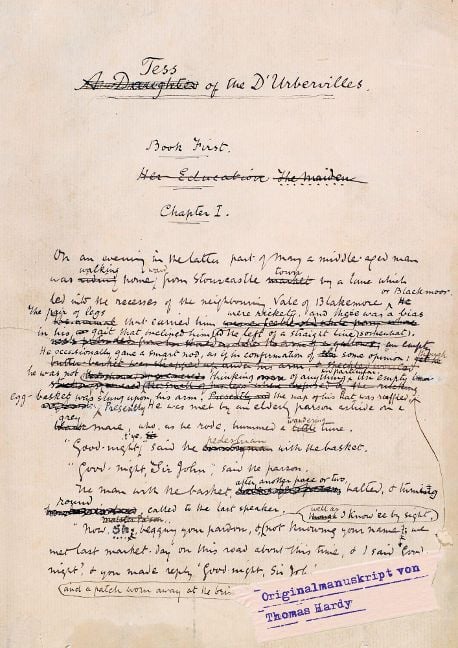 Tess
A Daughter of the D'Urbervilles.
Book First.
Her Education The Maiden
Chapter I.
On an evening in the latter part of May a middle-aged man
walking ward town
was riding home from Stourcastle market by a lane which
or Blackmoor.
led into the recesses of the neighbouring Vale of Blakemore. He
The pair of legs were rickety, and there was a bias
that carried him
in his gait that inclined him to the left of a straight line somewhat.
He occasionally gave a smart nod, as if in confirmation of some opinion; though
he was not thinking of anything in particular. An empty
egg-basket was slung upon his arm. Presently the nap of his hat was ruffled
Presently He was met by an elderly parson astride on a
grey wandering
mare, who, as he rode, hummed a tune.
pedestrian
"Good-night," said the with the basket.
"Good-night, Sir John," said the parson.
after another pace or two,
The man with the basket halted, & turning
round
, called to the last speaker.
well as
though I know ee by sight,
"Now, Sir, begging your pardon, & (not knowing your name); we
met last market-day on this road about this time, & I said 'Good
night', & you made reply 'Good-night, Sir Joh
and a patch worn away at the bri
Originalmanuskript von
Thomas Hardy